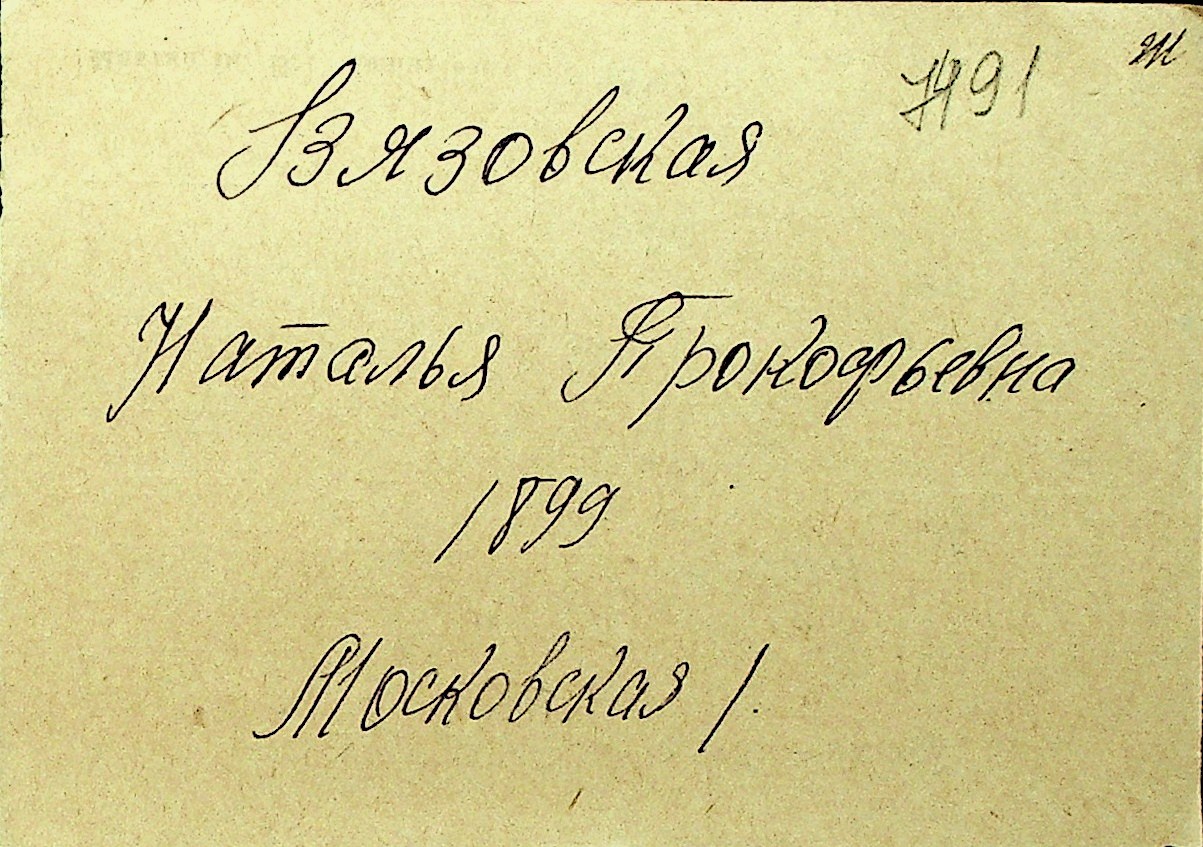 Вязовская
Наталья Прокофьевна
1899
Московская 1.